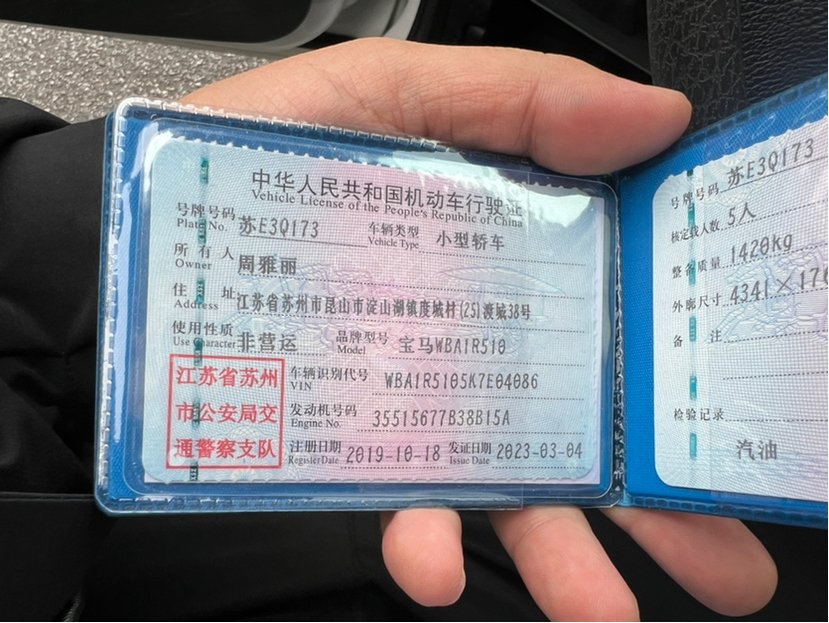 中华人民共和国机动车行驶证
Vehicle License of the People's Republic of China
号牌号码 苏E3Q173 车辆类型 小型轿车
Plate No. Vehicle Type
所有人 周雅丽
Owner
住址 江苏省苏州市昆山市淀山湖镇度城村(25)渡城38号
Address
使用性质 非营运 品牌型号 宝马WBA1R510
Use Character Model
江苏省苏州
市公安局交
通警察支队
车辆识别代号 WBA1R5105K7E04086
VIN
发动机号码 35515677B38B15A
Engine No.
注册日期 2019-10-18 发证日期 2023-03-04
Register Date Issue Date
号牌号码 苏E3Q173
核定载人数 5人
整备质量 1420kg
外廓尺寸 4341×176
备注
检验记录
汽油